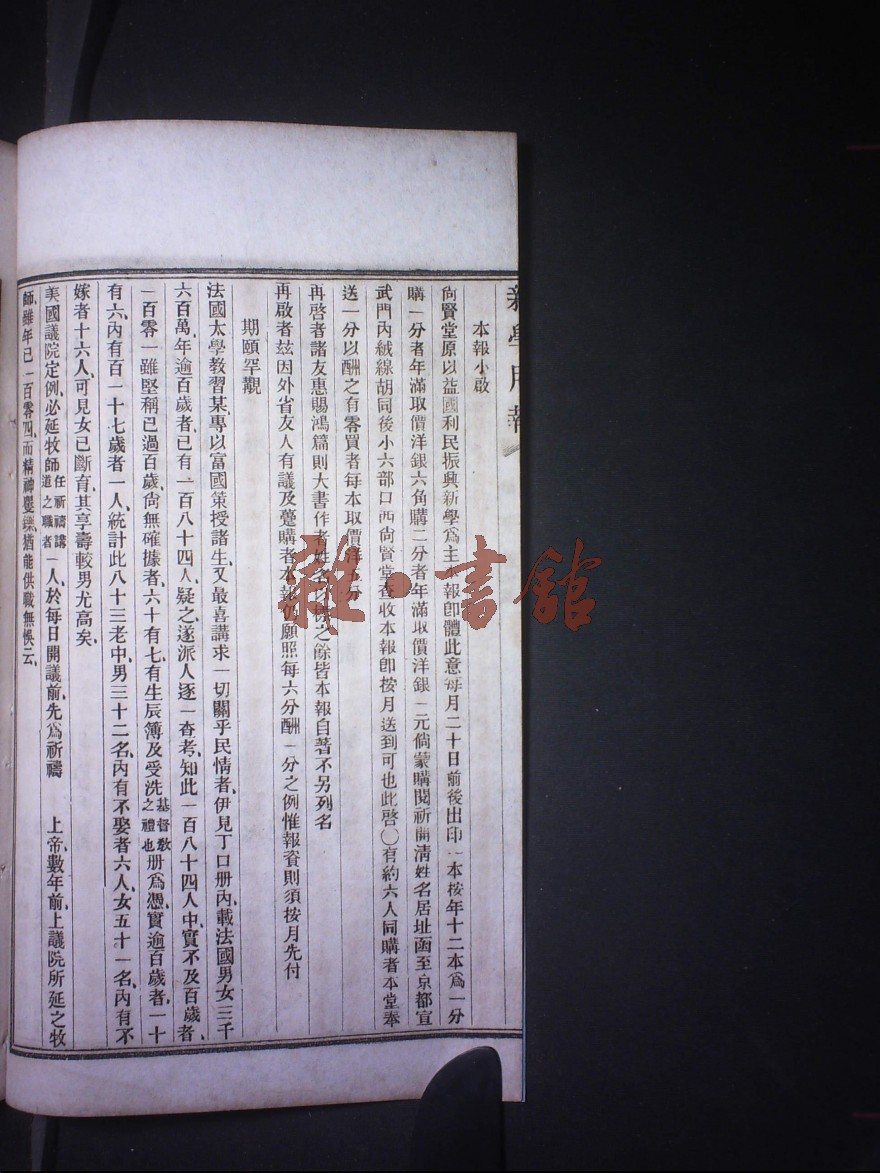 新學月報
本報小啟
尙賢堂原以益國利民振興新學爲主本報卽體此意每月二十日前後出印一本按年十二本爲一分
購一分者年滿取價洋銀六角購二分者年滿取價洋銀一元倘蒙購閱祈開淸姓名居址函至京都宣
武門內絨線胡同後小六部口西尙賢堂查收本報卽按月送到可也此啓〇有約六人同購者本堂奉
送一分以酬之有零買者每本取價洋五分
再啓者諸友惠賜鴻篇則大書作者姓名以標之餘皆本報自著不另列名
再啟者玆因外省友人有議及躉購者本報仍願照每六分酬一分之例惟報資則須按月先付
期頤罕覯
法國太學敎習某、專以富國策授諸生、又最喜講求一切關乎民情者、伊見丁口册內、載法國男女三千
六百萬、年逾百歲者、已有一百八十四人、疑之、遂派人逐一查考、知此一百八十四人中、實不及百歲者、
一百零一、雖堅稱已過百歲、尙無確據者、六十有七、有生辰簿及受洗基督敎之禮也册爲憑、實逾百歲者、一十
有六、內有百一十七歲者一人、統計此八十三老中、男三十二名、內有不娶者六人、女五十一名、內有不
嫁者十六人、可見女已斷育、其享壽較男尤高矣、
美國議院定例、必延牧師任祈禱講道之職者一人、於每日開議前、先爲祈禱 上帝、數年前、上議院所延之牧
師、雖年已一百零四、而精神矍鑠、猶能供職無悞云、
雜·書館